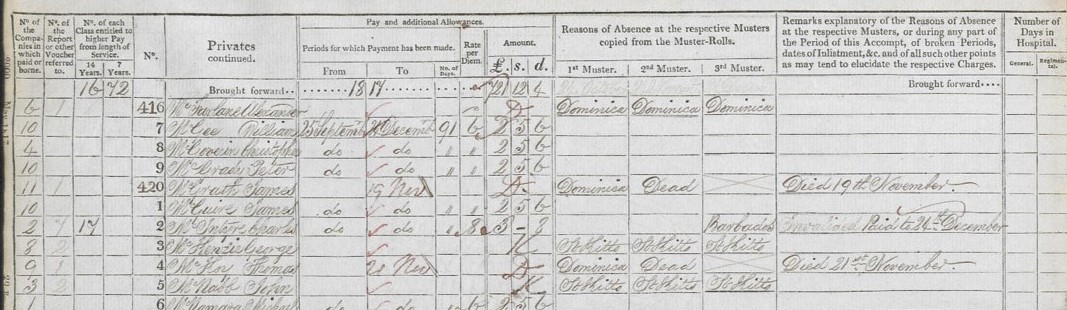 Nº of the Companies in which paid or borne. Nº. of the Report or other Voucher referred to. Nº. of each Class entitled to higher Pay from length of Service. 14 Years. 7 Years. Nº. Privates continued. Pay and additional Allowances. Periods for which Payment has been made. From To No. of Days. Rate per Diem. Amount. £. s. d. Reasons of Absence at the respective Musters copied from the Muster-Rolls. 1st Muster. 2nd Muster. 3rd Muster. Remarks explanatory of the Reasons of Absence at the respective Musters, or during any part of the Period of this Accompt, of broken Periods, dates of Inlistment, &c. and of all such other points as may tend to elucidate the respective Charges. Number of Days in Hospital. General. Regimental.
16 72 Brought forward 1817 721 12 4 Brought forward
6 1 416 McFarlane Alexander D. Dominica Dominica Dominica
10 7 McGee William 25 Septemb 24 Decemb 91 6 2 5 6
4 8 McGovern Christopher do do " " 2 5 6
10 9 McGrady Peter do do " " 2 5 6
11 1 420 McGrath James 19 Nov D. Dominica Dead Died 19th November.
10 1 McGuire James do do " " 2 5 6
2 17 2 McIntire Charles do do " 8 3 - 8 Barbados Invalided Paid to 24th December
8 2 3 McKenzie George K StKitts StKitts StKitts
9 1 4 Thomas Nov D Dominica Dead Died 21st November.
3 2 5 McNabb John K StKitts StKitts StKitts
1 6 McNamara Michael do do " 6 2 5 6